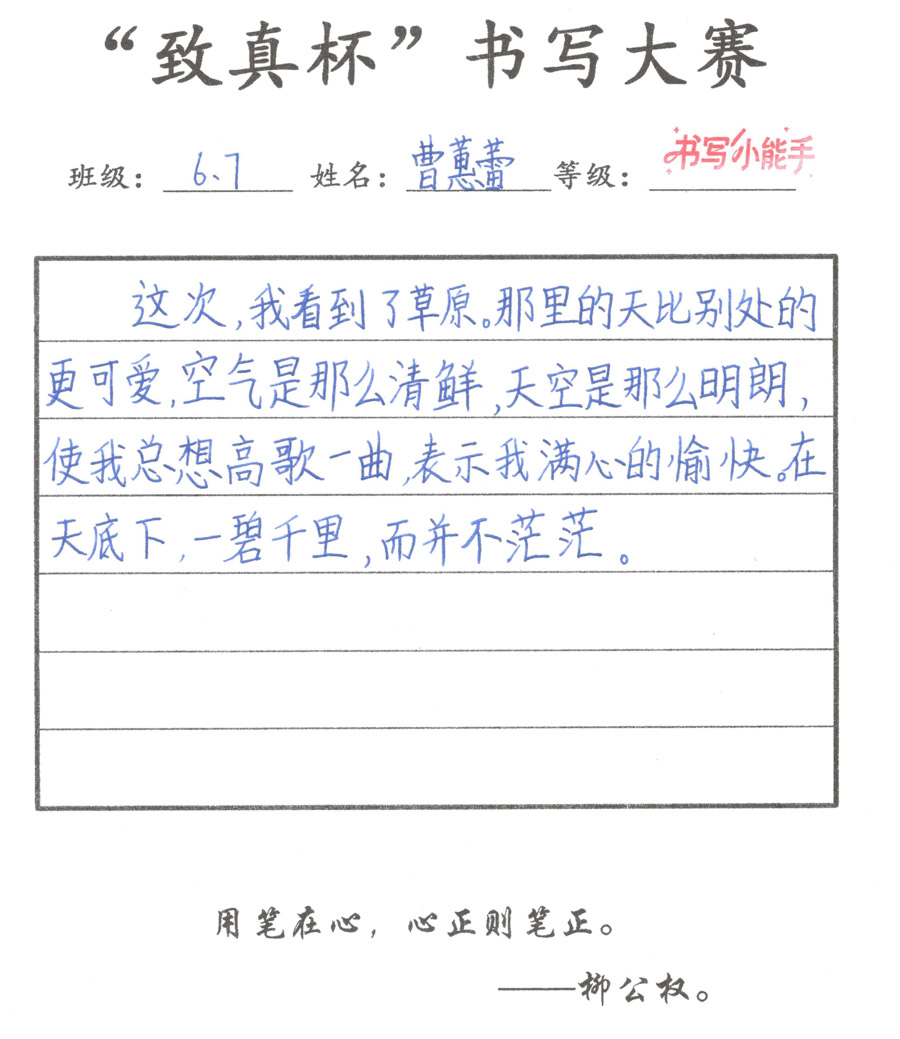 “致真杯”书写大赛
班级：6.7 姓名：曹蕙蕾 等级：书写小能手
这次，我看到了草原。那里的天比别处的
更可爱，空气是那么清鲜，天空是那么明朗，
使我总想高歌一曲，表示我满心的愉快。在
天底下，一碧千里，而并不茫茫。
用笔在心，心正则笔正。
——柳公权。